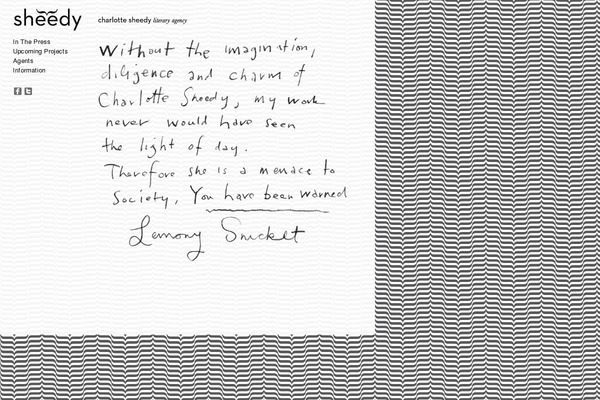 sheedy
charlotte sheedy literary agency
In The Press
Upcoming Projects
Agents
Information
Without the imagination,
diligence and charm of
Charlotte Sheedy, my work
never would have seen
the light of day.
Therefore she is a menace to
Society, You have been warned
Lemony Snicket